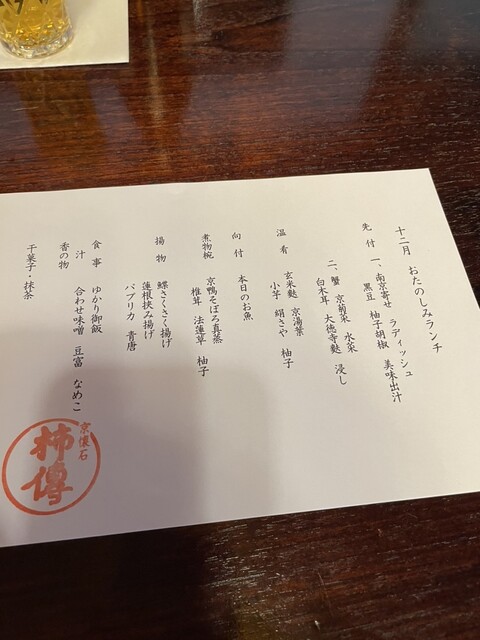 十二月　おたのしみランチ
先付　一、南京寄せ　ラディッシュ
黒豆　柚子胡椒　美味出汁
二、蟹　京菊菜　水菜
白木耳　大徳寺麩　浸し
温肴　玄米麩　京湯葉
小芋　絹さや　柚子
向付　本日のお魚
煮物椀　京鴨そぼろ真蒸
椎茸　法蓮草　柚子
揚物　鰈さくさく揚げ
蓮根挟み揚げ
パプリカ　青唐
食事　ゆかり御飯
汁　合わせ味噌　豆富　なめこ
香の物
干菓子・抹茶
京懐石
柿傳